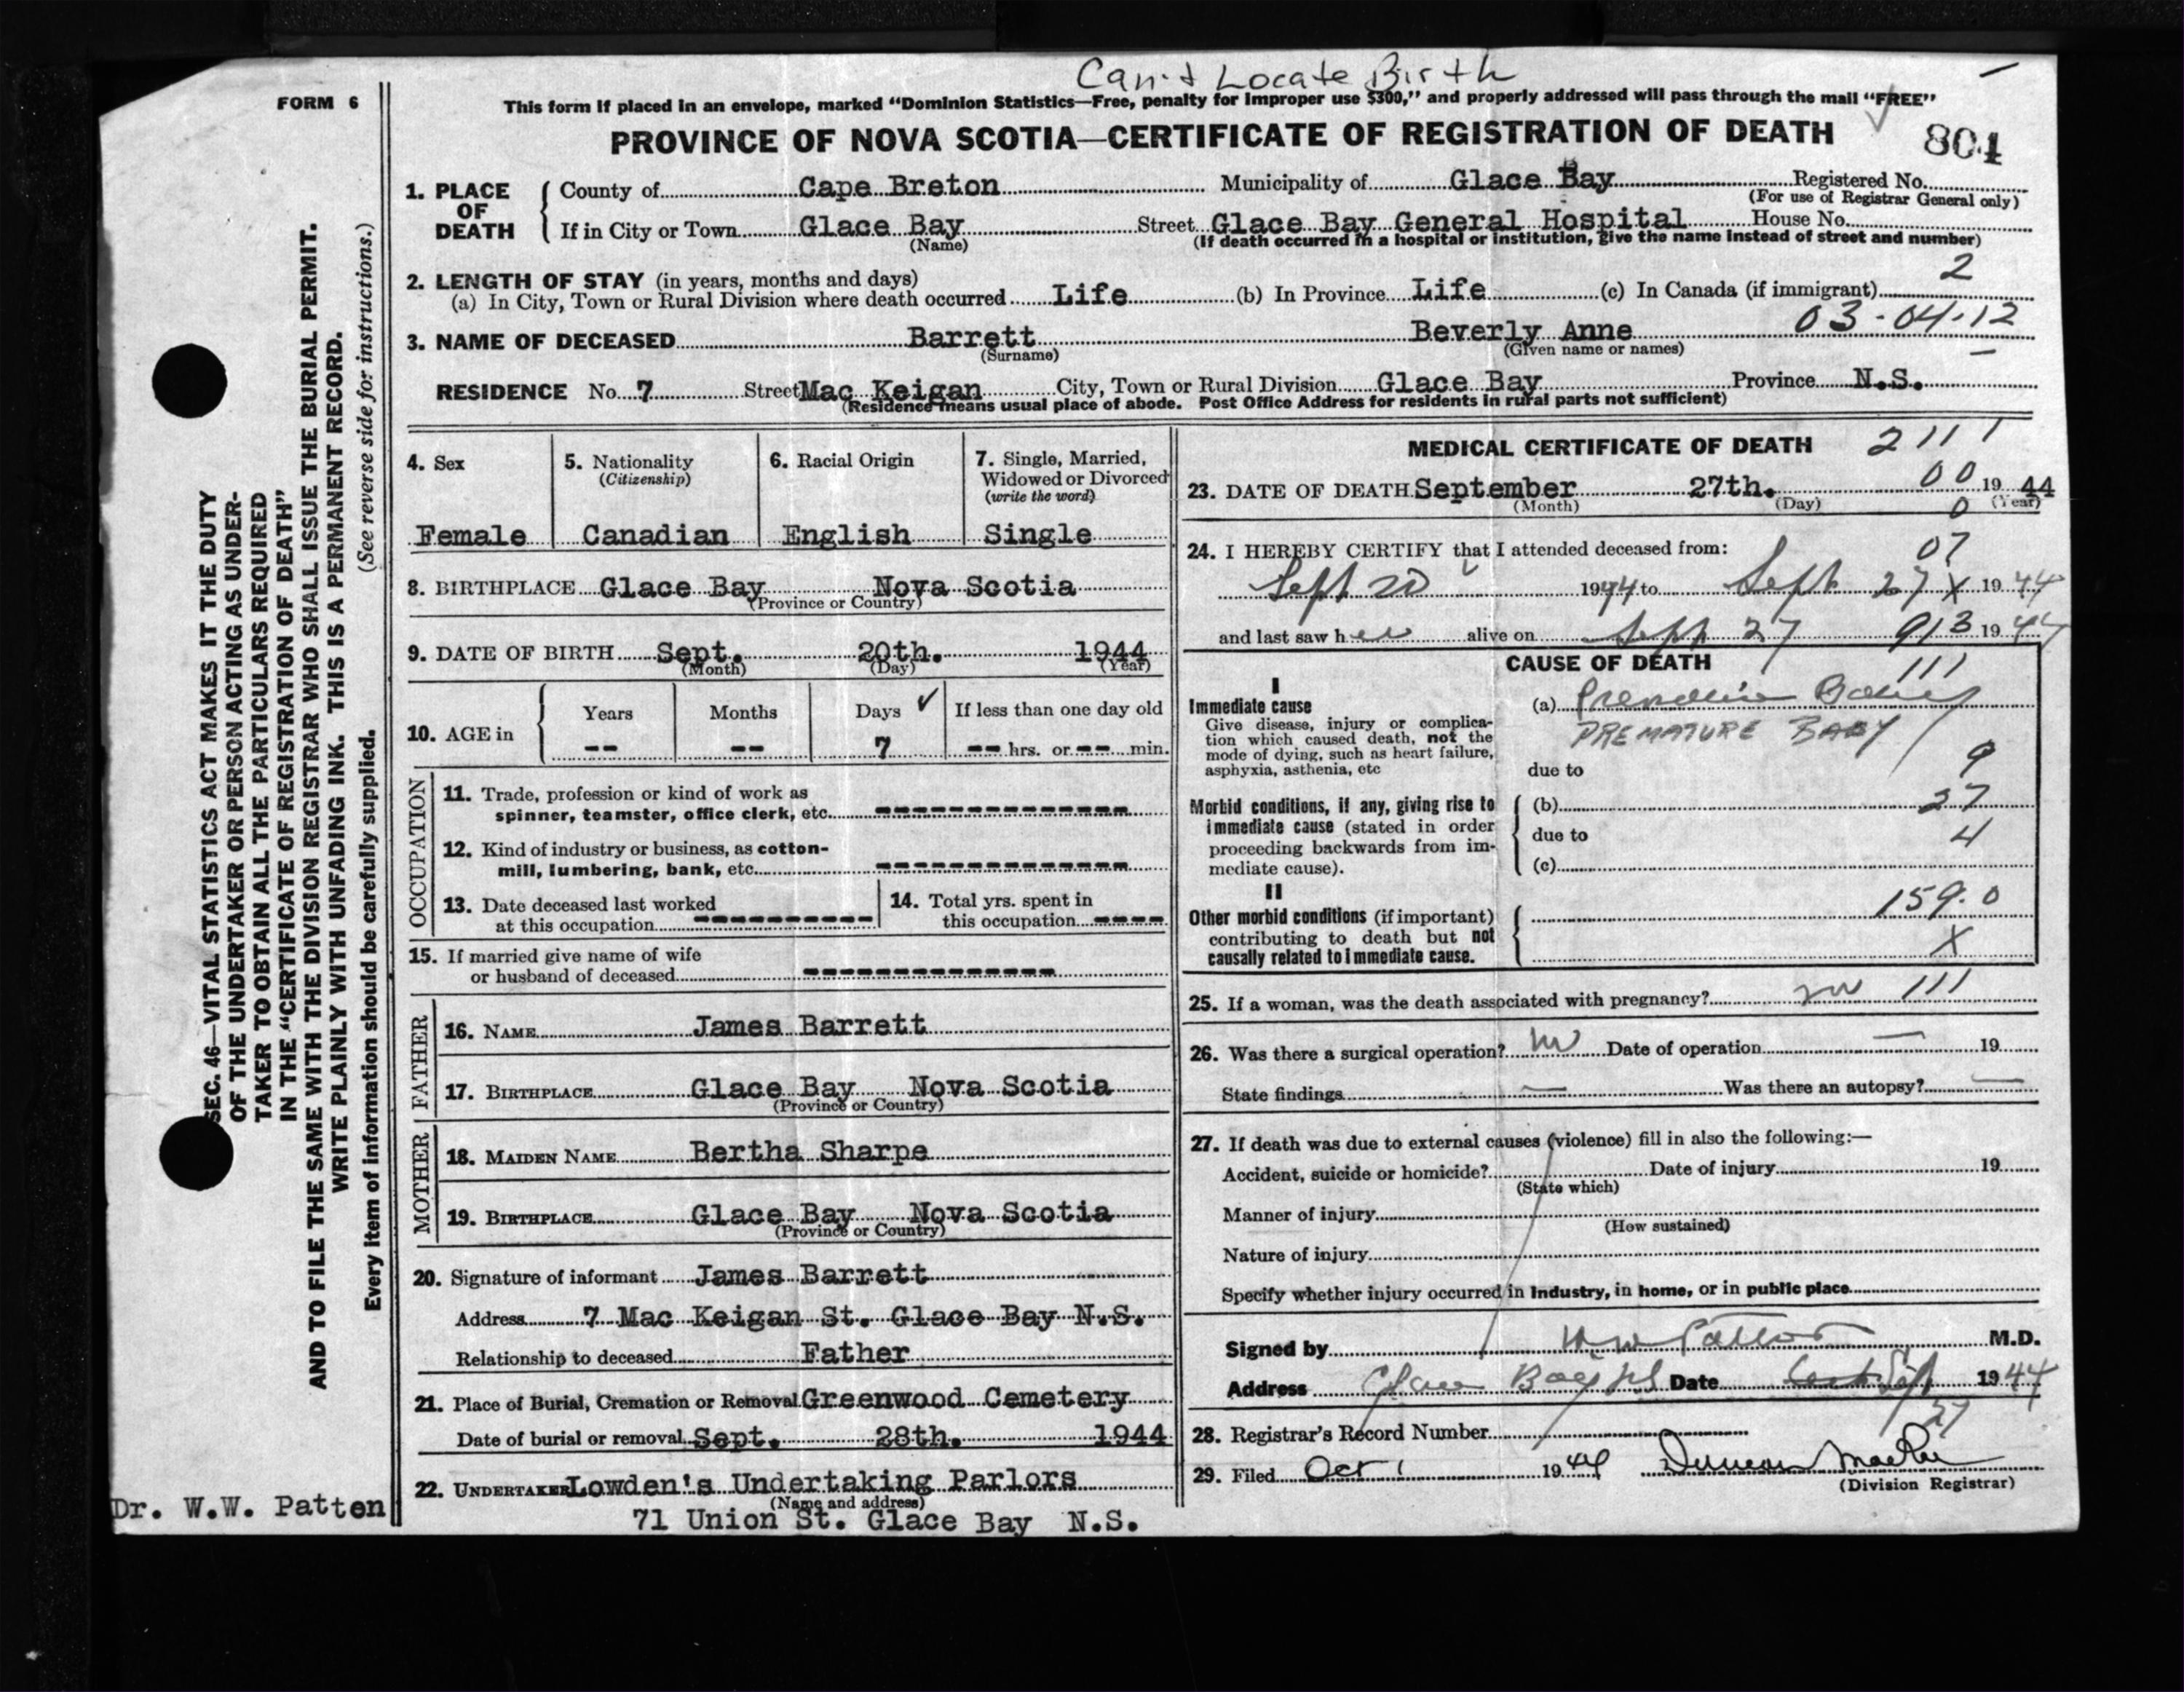 Can't Locate Birth
FORM 6
This form if placed in an envelope, marked "Dominion Statistics—Free, penalty for improper use $300," and properly addressed will pass through the mail "FREE"
PROVINCE OF NOVA SCOTIA—CERTIFICATE OF REGISTRATION OF DEATH
804
1. PLACE OF DEATH
County of Cape Breton Municipality of Glace Bay Registered No.
(For use of Registrar General only)
If in City or Town Glace Bay Street Glace Bay General Hospital House No.
(Name) (If death occurred in a hospital or institution, give the name instead of street and number)
2. LENGTH OF STAY (in years, months and days) 2
(a) In City, Town or Rural Division where death occurred Life (b) In Province Life (c) In Canada (if immigrant)
3. NAME OF DECEASED Barrett Beverly Anne 03-04-12
(Surname) (Given name or names)
RESIDENCE No. 7 Street Mac Keigan City, Town or Rural Division Glace Bay Province N.S.
(Residence means usual place of abode. Post Office Address for residents in rural parts not sufficient)
4. Sex
Female
5. Nationality
(Citizenship)
Canadian
6. Racial Origin
English
7. Single, Married,
Widowed or Divorced
(write the word)
Single
8. BIRTHPLACE Glace Bay Nova Scotia
(Province or Country)
9. DATE OF BIRTH Sept. 20th. 1944
(Month) (Day) (Year)
10. AGE in
Years Months Days ✓ If less than one day old
-- -- 7 -- hrs. or -- min.
OCCUPATION
11. Trade, profession or kind of work as
spinner, teamster, office clerk, etc.
12. Kind of industry or business, as cotton-
mill, lumbering, bank, etc.
13. Date deceased last worked
at this occupation
14. Total yrs. spent in
this occupation
15. If married give name of wife
or husband of deceased
FATHER
16. NAME James Barrett
17. BIRTHPLACE Glace Bay Nova Scotia
(Province or Country)
MOTHER
18. MAIDEN NAME Bertha Sharpe
19. BIRTHPLACE Glace Bay Nova Scotia
(Province or Country)
20. Signature of informant James Barrett
Address 7 Mac Keigan St. Glace Bay N.S.
Relationship to deceased Father
21. Place of Burial, Cremation or Removal Greenwood Cemetery
Date of burial or removal Sept. 28th. 1944
22. UNDERTAKER Lowden's Undertaking Parlors
(Name and address)
71 Union St. Glace Bay N.S.
MEDICAL CERTIFICATE OF DEATH 2111
23. DATE OF DEATH September 27th. 00 19 44
(Month) (Day) 0 (Year)
24. I HEREBY CERTIFY that I attended deceased from: 07
Sept 20 1944 to Sept 27 X 19 44
and last saw her alive on Sept 27 913 19 44
CAUSE OF DEATH 111
I
Immediate cause
Give disease, injury or complica-
tion which caused death, not the
mode of dying, such as heart failure,
asphyxia, asthenia, etc
(a) Premature Baby
PREMATURE BABY
due to 9
Morbid conditions, if any, giving rise to
immediate cause (stated in order
proceeding backwards from im-
mediate cause).
(b) 27
due to 4
(c)
II
Other morbid conditions (if important)
contributing to death but not
causally related to immediate cause.
159.0
X
25. If a woman, was the death associated with pregnancy? no 111
26. Was there a surgical operation? no Date of operation — 19
State findings — Was there an autopsy? —
27. If death was due to external causes (violence) fill in also the following:—
Accident, suicide or homicide? Date of injury 19
(State which)
Manner of injury
(How sustained)
Nature of injury
Specify whether injury occurred in industry, in home, or in public place
Signed by W W Patton M.D.
Address Glace Bay NS Date Sept 27 1944
28. Registrar's Record Number
29. Filed Oct 1 1944 Duncan
(Division Registrar)
SEC. 46—VITAL STATISTICS ACT MAKES IT THE DUTY
OF THE UNDERTAKER OR PERSON ACTING AS UNDER-
TAKER TO OBTAIN ALL THE PARTICULARS REQUIRED
IN THE "CERTIFICATE OF REGISTRATION OF DEATH"
AND TO FILE THE SAME WITH THE DIVISION REGISTRAR WHO SHALL ISSUE THE BURIAL PERMIT.
WRITE PLAINLY WITH UNFADING INK. THIS IS A PERMANENT RECORD.
(See reverse side for instructions.)
Every item of information should be carefully supplied.
Dr. W.W. Patten